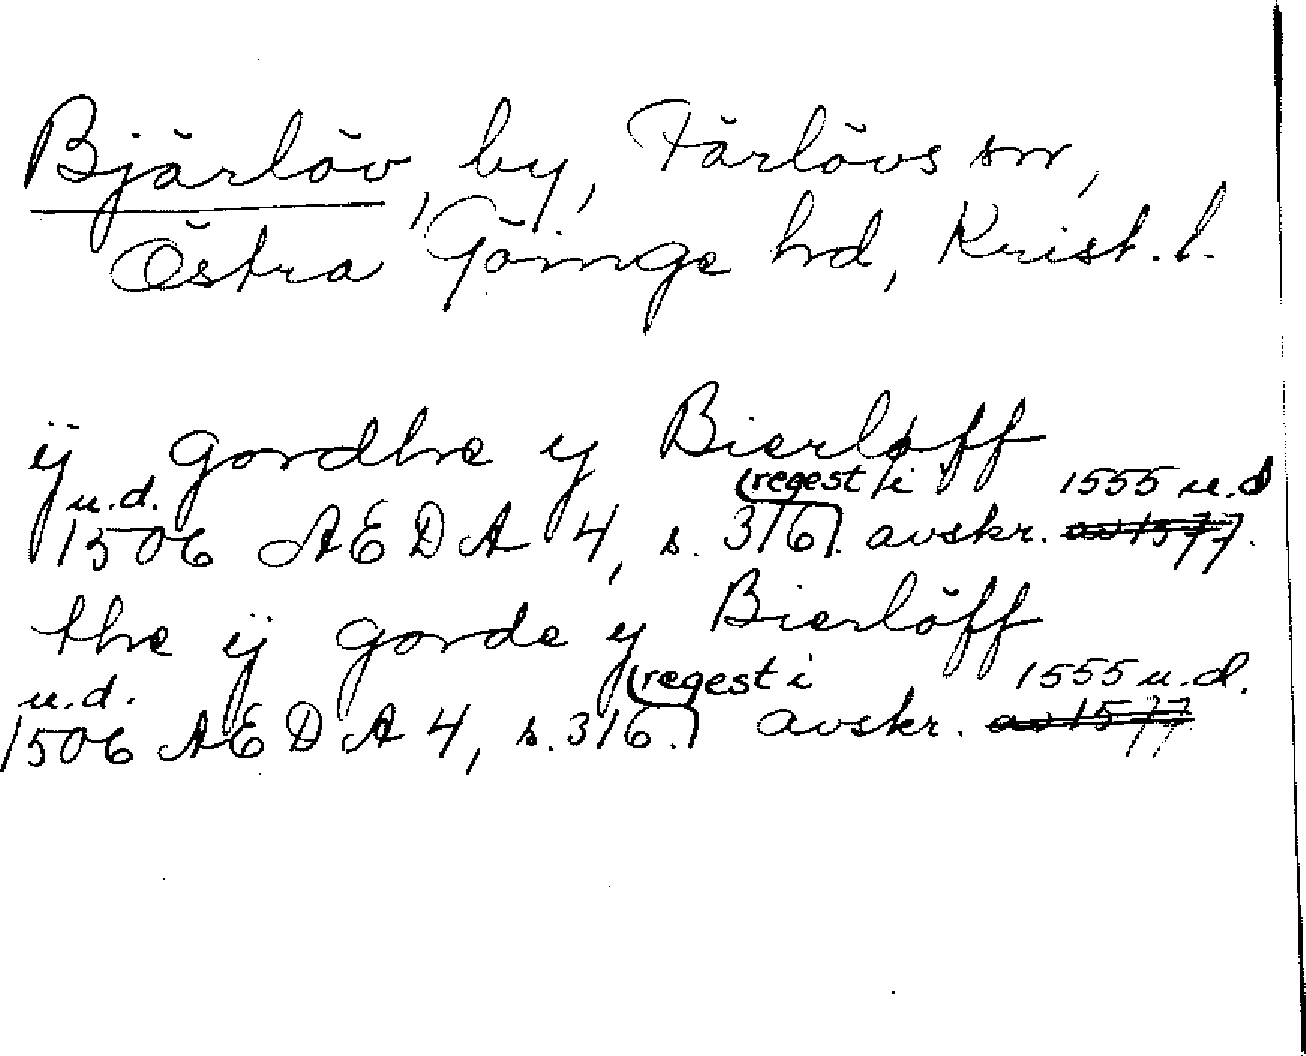 Bjärlöv, by, Färlövs sn,
Östra Göinge hd, Krist. l.
ij gordhe y Bierløff
u.d. (regest i 1555 u.d
1506 AEDA 4, s. 316). avskr. av 1577.
the ij gorde y Bierlöff
u.d. (regest i 1555 u.d.
1506 AEDA 4, s. 316.) avskr. av 1577.